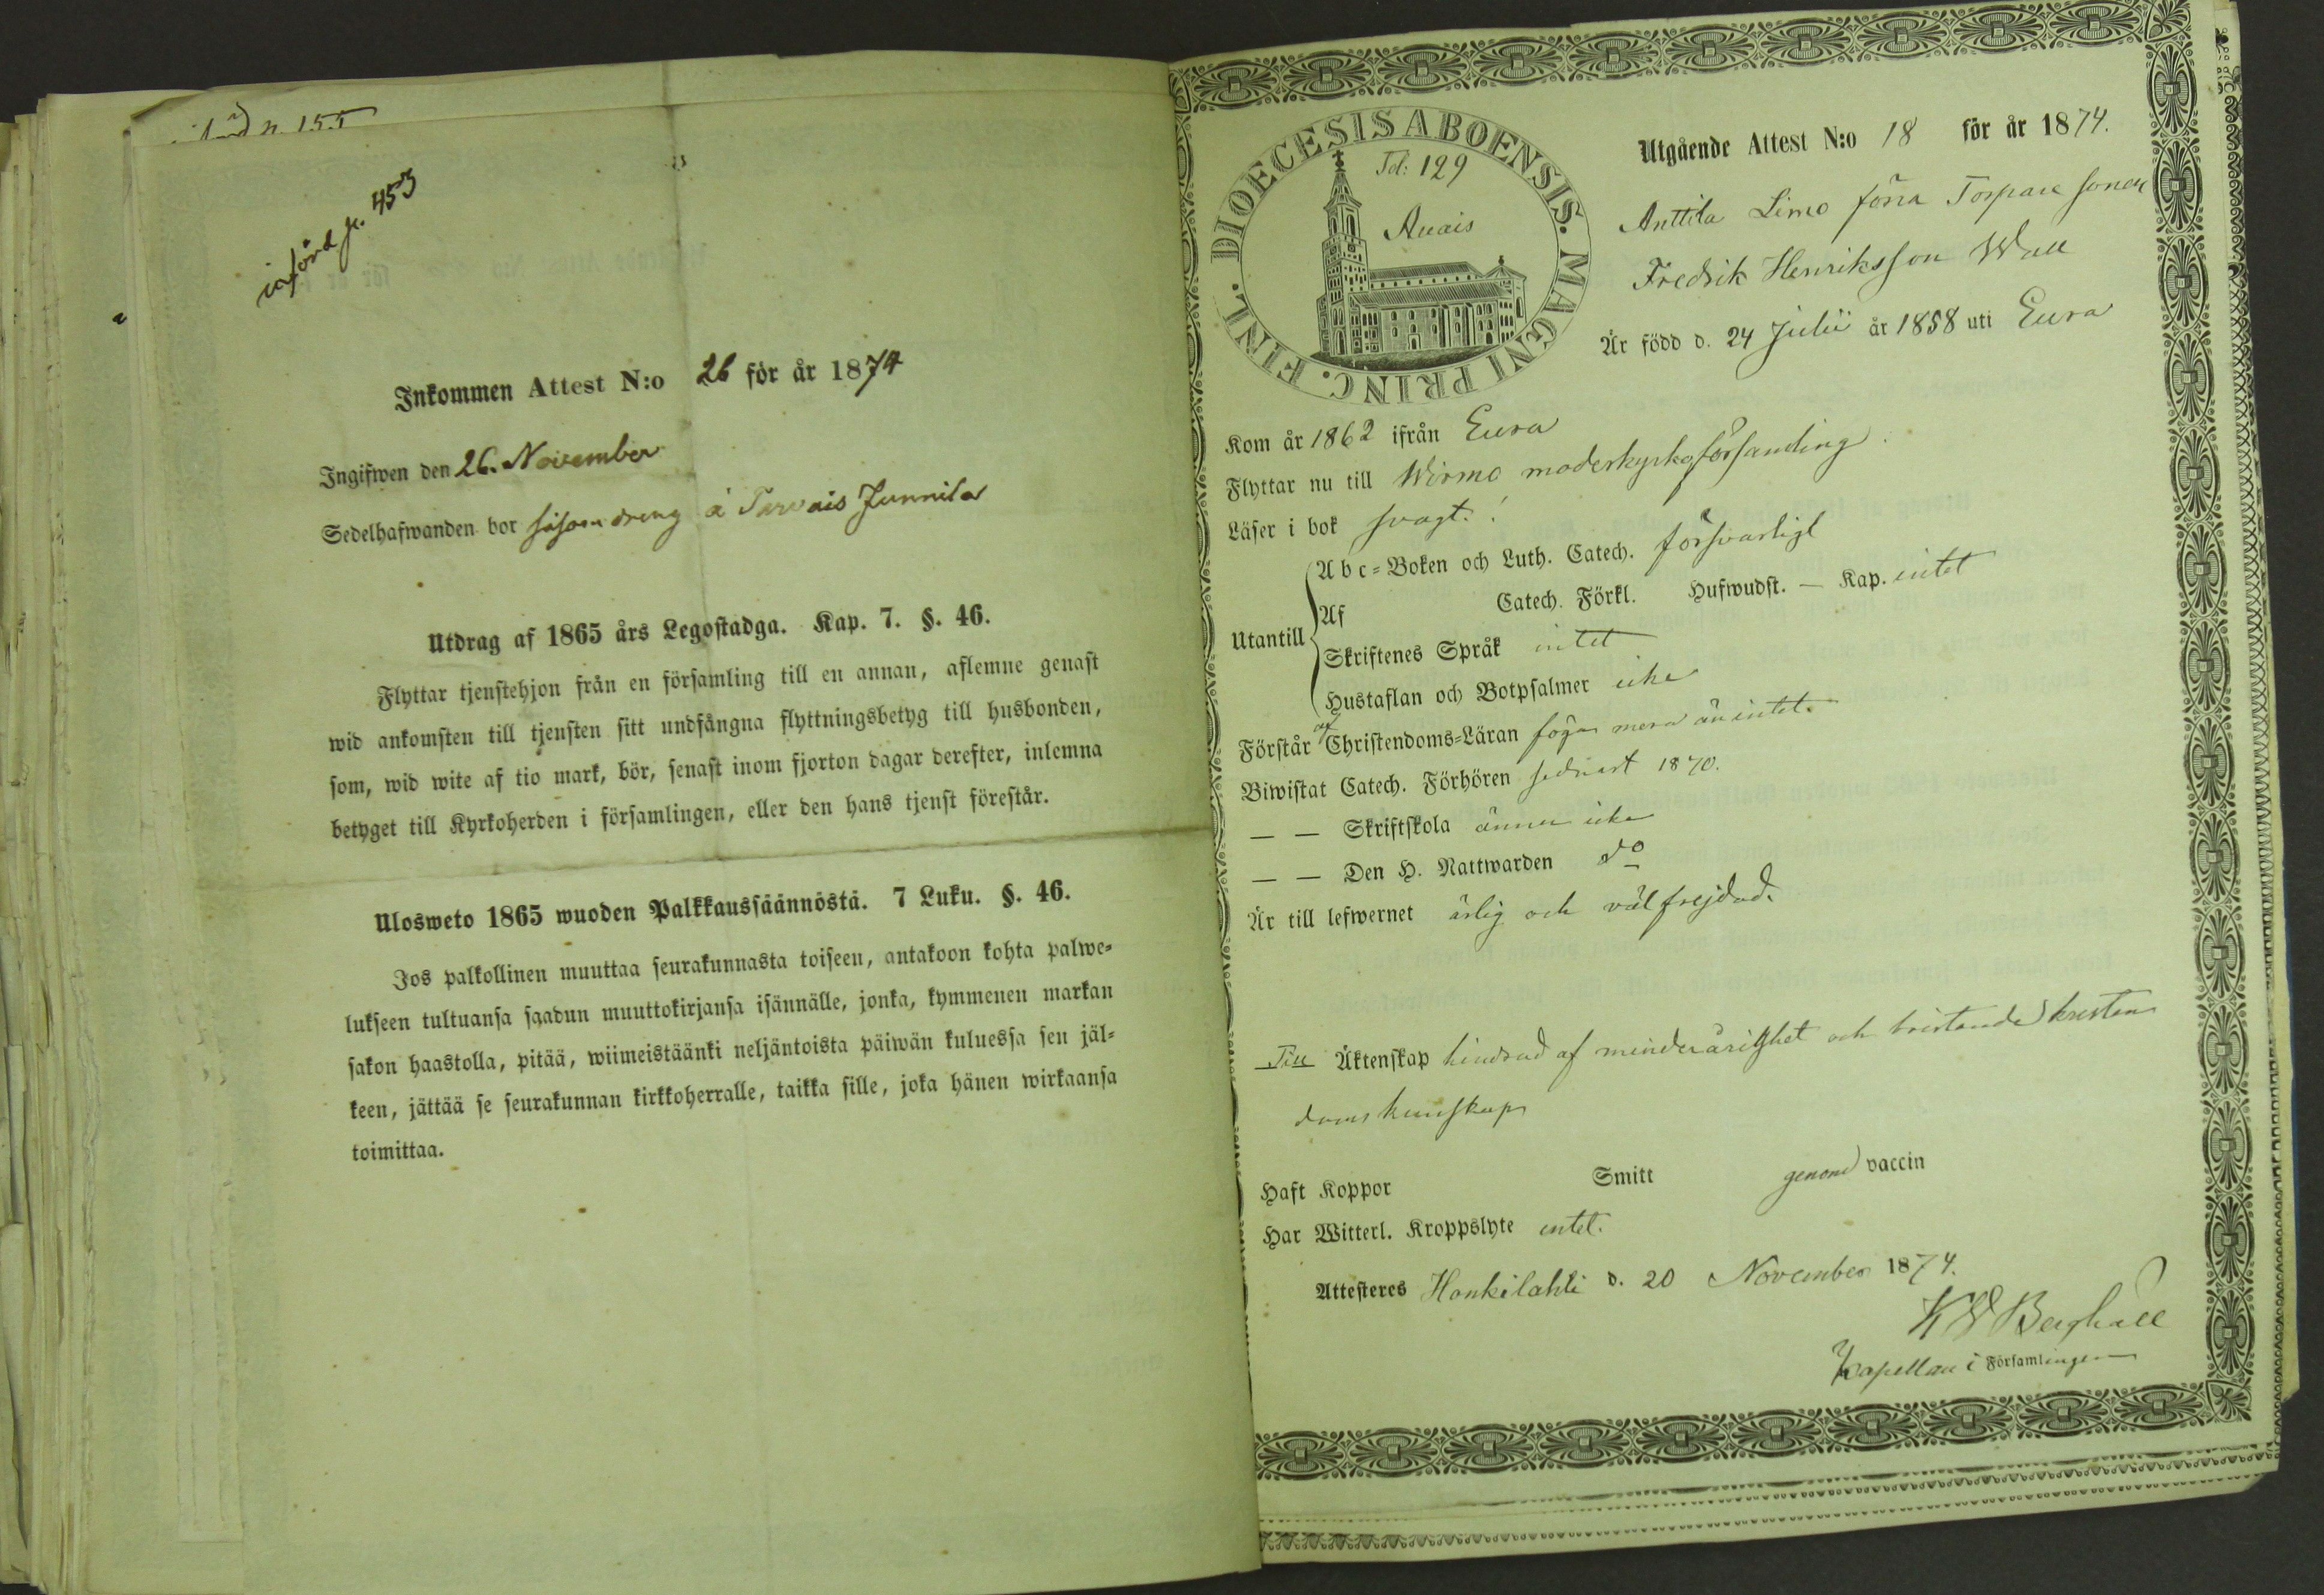 införd p. 453
Inkommen Attest N:o 26 för år 1874
Ingifwen den 26. November
Sedelhafwanden bor såsom dreng å Tarvais Junnila
Utdrag af 1865 års Legostadga. Kap. 7. §. 46.
Flyttar tjenstehjon från en församling till en annan, aflemne genast
wid ankomsten till tjensten sitt undfångna flyttningsbetyg till husbonden,
som, wid wite af tio mark, bör, senast inom fjorton dagar derefter, inlemna
betyget till Kyrkoherden i församlingen, eller den hans tjenst förestår.
Ulosweto 1865 wuoden Palkkaussäännöstä. 7 Luku. §. 46.
Jos palkollinen muuttaa seurakunnasta toiseen, antakoon kohta palwe-
lukseen tultuansa saadun muuttokirjansa isännälle, jonka, kymmenen markan
sakon haastolla, pitää, wiimeistäänki neljäntoista päiwän kuluessa sen jäl-
keen, jättää se seurakunnan kirkkoherralle, taikka sille, joka hänen wirkaansa
toimittaa.
DIOECESIS ABOENSIS. MAGNI PRINC. FINL.
Fol: 129
Auvais
Utgående Attest N:o 18 för år 1874.
Anttila Simo förra Torpare sonen
Fredrik Henriksson Wall
Är född d. 24 Julii år 1858 uti Eura
Kom år 1862 ifrån Eura
Flyttar nu till Wirmo moderkyrkoförsamling.
Läser i bok svagt.
Utantill
Abc-Boken och Luth. Catech. försvarligt
Af Catech. Förkl. Hufwudst. — Kap. intet
Skriftenes Språk intet
Hustaflan och Botpsalmer icke
Förstår af Christendoms-Läran föga mera än intet.
Biwistat Catech. Förhören sednast 1870.
— — Skriftskola ännu icke
— — Den H. Nattwarden do
Är till lefwernet ärlig och välfrejdad.
Till Äktenskap hindrad af minderårighet och bristande kristen
doms kunskap
Haft Koppor Smitt genom vaccin
Har Witterl. Kroppslyte intet.
Attesteres Honkilahti d. 20 November 1874.
K W Berghäll
Kapellan i Församlingen